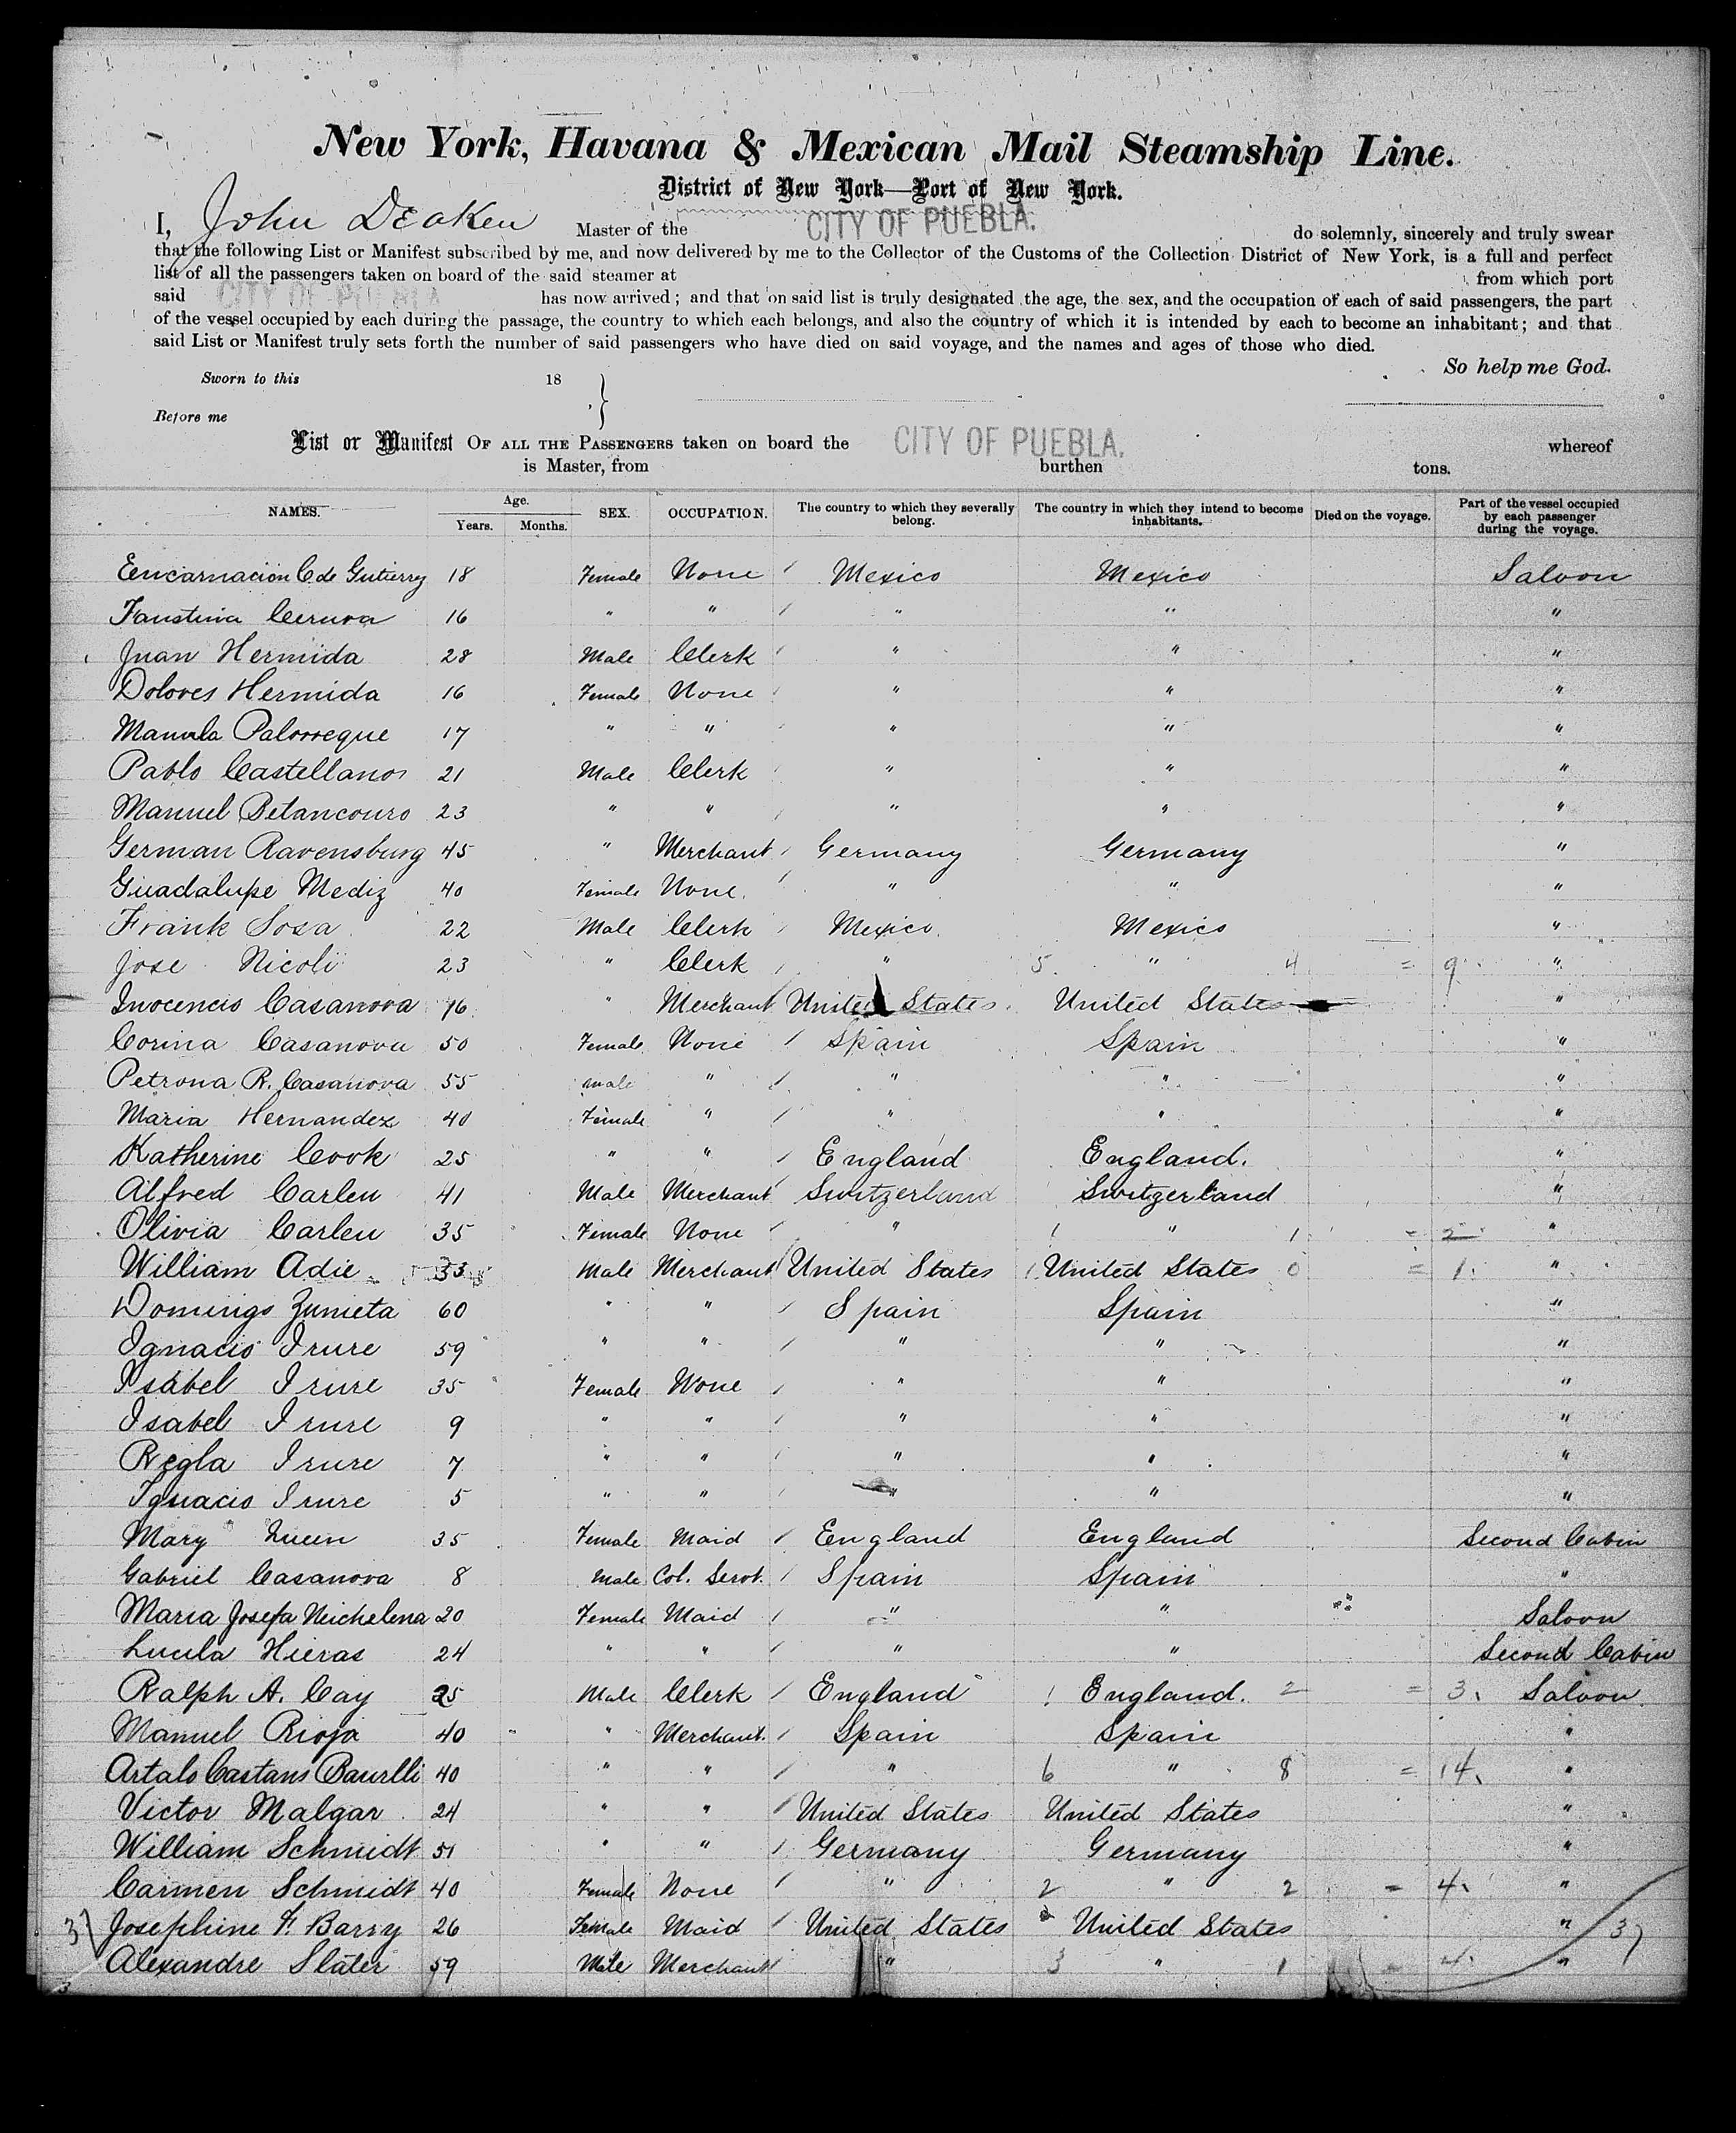 New York, Havana & Mexican Mail Steamship Line.
District of New York—Port of New York.
I, John Deaken Master of the CITY OF PUEBLA. do solemnly, sincerely and truly swear
that the following List or Manifest subscribed by me, and now delivered by me to the Collector of the Customs of the Collection District of New York, is a full and perfect
list of all the passengers taken on board of the said steamer at from which port
said CITY OF PUEBLA has now arrived; and that on said list is truly designated the age, the sex, and the occupation of each of said passengers, the part
of the vessel occupied by each during the passage, the country to which each belongs, and also the country of which it is intended by each to become an inhabitant; and that
said List or Manifest truly sets forth the number of said passengers who have died on said voyage, and the names and ages of those who died.
So help me God.
Sworn to this 18
Before me
List or Manifest OF ALL THE PASSENGERS taken on board the CITY OF PUEBLA. whereof
is Master, from burthen tons.
NAMES. Age. Years. Months. SEX. OCCUPATION. The country to which they severally belong. The country in which they intend to become inhabitants. Died on the voyage. Part of the vessel occupied by each passenger during the voyage.
Eencarnacion C. de Gutierrey 18 Female None / Mexico Mexico Saloon
Faustina 16 " " / " " "
Juan Hermida 28 Male Clerk / " " "
Dolores Hermida 16 Female None / " " "
Manuela Palorreque 17 " " / " " "
Pablo Castellanos 21 Male Clerk / " " "
Manuel Betancouro 23 " " " " "
German Ravensburg 45 " Merchant / Germany Germany "
Guadalupe Mediz 40 Female None. / " " "
Frank Sosa 22 Male Clerk / Mexico Mexico "
Jose Nicoli 23 " Clerk / " 5. " 4 = 9 "
Inocencio Casanova 76 " Merchant United States United States "
Corina Casanova 50 Female None / Spain Spain "
Petrona R. Casanova 55 male " / " " "
Maria Hernandez 40 Female " / " " "
Katherine Cook 25 " " / England England. "
Alfred Carleu 41 Male Merchant Switzerland Switzerland "
Olivia Carleu 35 Female None / " 1 " 1 = 2 "
William Adie 33 Male Merchant United States 1 United States 0 = 1. "
Domingo Zumeta 60 " " / Spain Spain "
Ignacio Irure 59 " " / " " "
Ysabel Irure 35 Female None / " " "
Isabel Irure 9 " " / " " "
Regla Irure 7 " " / " " "
Ignacio Irure 5 " " / " " "
Mary Queen 35 Female Maid / England England Second Cabin
Gabriel Casanova 8 Male Col. Servt. / Spain Spain "
Maria Josefa Michelena 20 Female Maid / " " Saloon
Lucila Hieras 24 " " / " " Second Cabin
Ralph A. Cay 25 Male Clerk / England 1 England. 2 = 3. Saloon
Manuel Rioja 40 " Merchant. / Spain Spain "
Artalo Castans 40 " " / " 6 " 8 = 14. "
Victor Malgar 24 " " / United States United States "
William Schmidt 51 " " / Germany Germany "
Carmen Schmidt 40 Female None / " 2 " 2 = 4. "
37 Josephine F. Barry 26 Female Maid / United States United States " 37
Alexandre Slater 59 Male Merchant / " 3 " 1 = 4. "